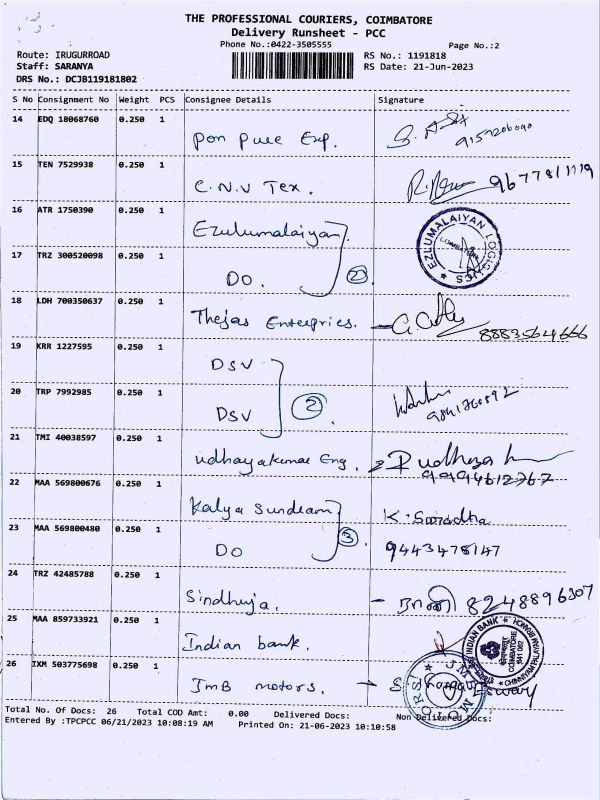 THE PROFESSIONAL COURIERS, COIMBATORE
Delivery Runsheet - PCC
Phone No.:0422-3505555
Page No.:2
Route: IRUGURROAD
RS No.: 1191818
Staff: SARANYA
RS Date: 21-Jun-2023
DRS No.: DCJB119181802
S No Consignment No Weight PCS Consignee Details Signature
14 EDQ 18068760 0.250 1
Pon Pure Exp.
9159206090
15 TEN 7529938 0.250 1
C.N.V Tex.
9677811119
16 ATR 1750390 0.250 1
Ezulumalaiyan
EZLUMALAIYAN LOGISTICS
COIMBATORE
17 TRZ 300520098 0.250 1
DO. 2
18 LDH 700350637 0.250 1
Thejas Enterpries.
8883564666
19 KRR 1227595 0.250 1
DSV
20 TRP 7992985 0.250 1
DSV 2
21 TMI 40038597 0.250 1
udhayakumar Eng.
22 MAA 569800676 0.250 1
Kalya Sundram
K. Saradha
23 MAA 569800480 0.250 1
DO 3
9443478147
24 TRZ 42485788 0.250 1
Sindhuja. - ராணி 8248896307
25 MAA 859733921 0.250 1
Indian bank.
INDIAN BANK
COIMBATORE
26 IXM 503775698 0.250 1
JMB motors.
Total No. Of Docs: 26 Total COD Amt: 0.00 Delivered Docs: Non Delivered Docs:
Entered By :TPCPCC 06/21/2023 10:08:19 AM Printed On: 21-06-2023 10:10:58